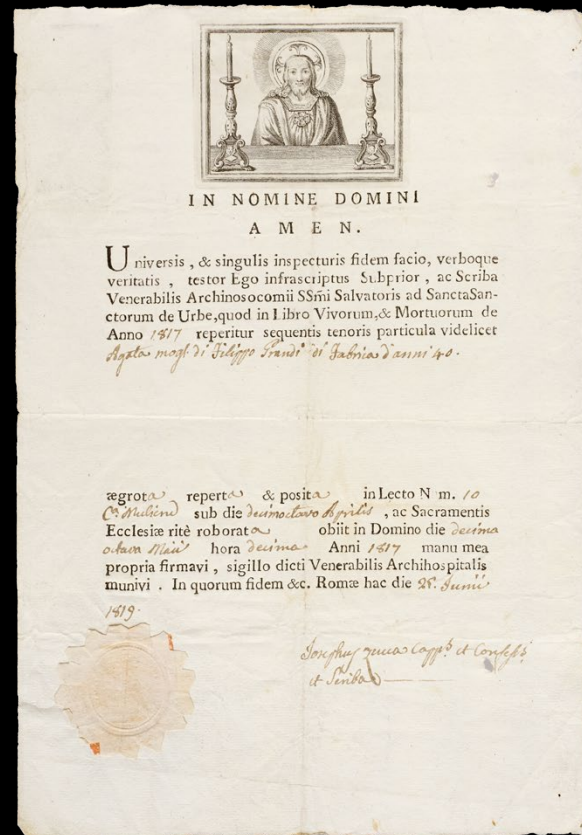 IN NOMINE DOMINI
AMEN.
Universis, & singulis inspecturis fidem facio, verboque
veritatis, testor Ego infrascriptus Subprior, ac Scriba
Venerabilis Archinosocomii SSmi Salvatoris ad SanctaSan-
ctorum de Urbe, quod in Libro Vivorum, & Mortuorum de
Anno 1817 reperitur sequentis tenoris particula videlicet
Agata mogl. di Filippo Grandi di Fabrica d'anni 40.
ægrota reperta & posita in Lecto N m. 10
sub die decimoctavo Aprilis, ac Sacramentis
Ecclesiæ ritè roborata obiit in Domino die decima
octava Maii hora decima Anni 1817 manu mea
propria firmavi, sigillo dicti Venerabilis Archihospitalis
munivi. In quorum fidem &c. Romæ hac die 28. Junii
1819.
Josephus et
et Scriba